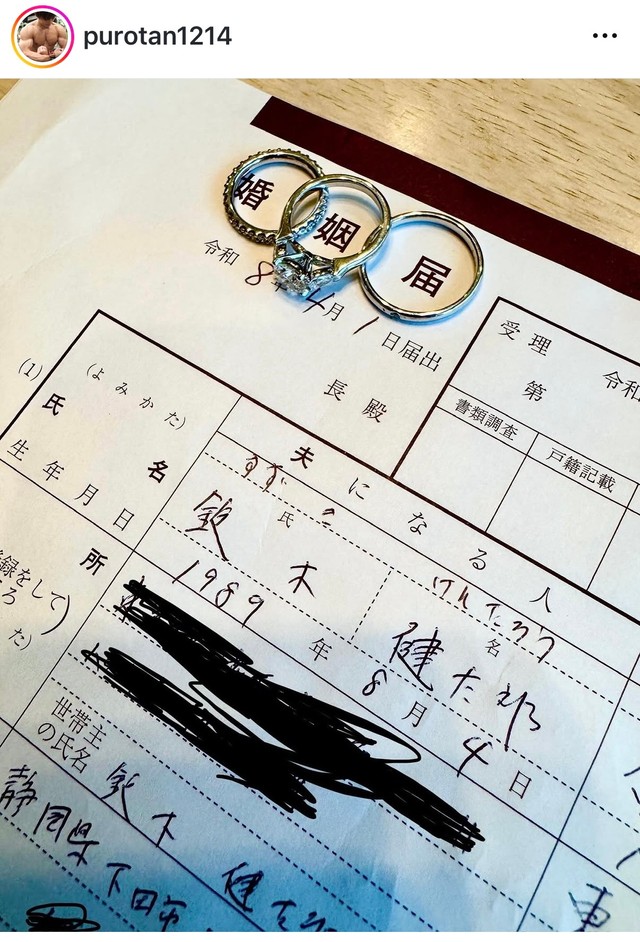 purotan1214
婚姻届
令和 8年 4月 1日届出
長殿
受理 令和
第
書類調査 戸籍記載
(1)
(よみかた)
氏名
生年月日
夫になる人
すず けんたろう
氏 名
鈴木 健太郎
1989年 8月 4日
所
録をして
ろ)
た)
世帯主
の氏名
鈴木 健太郎
静岡県下田市
東